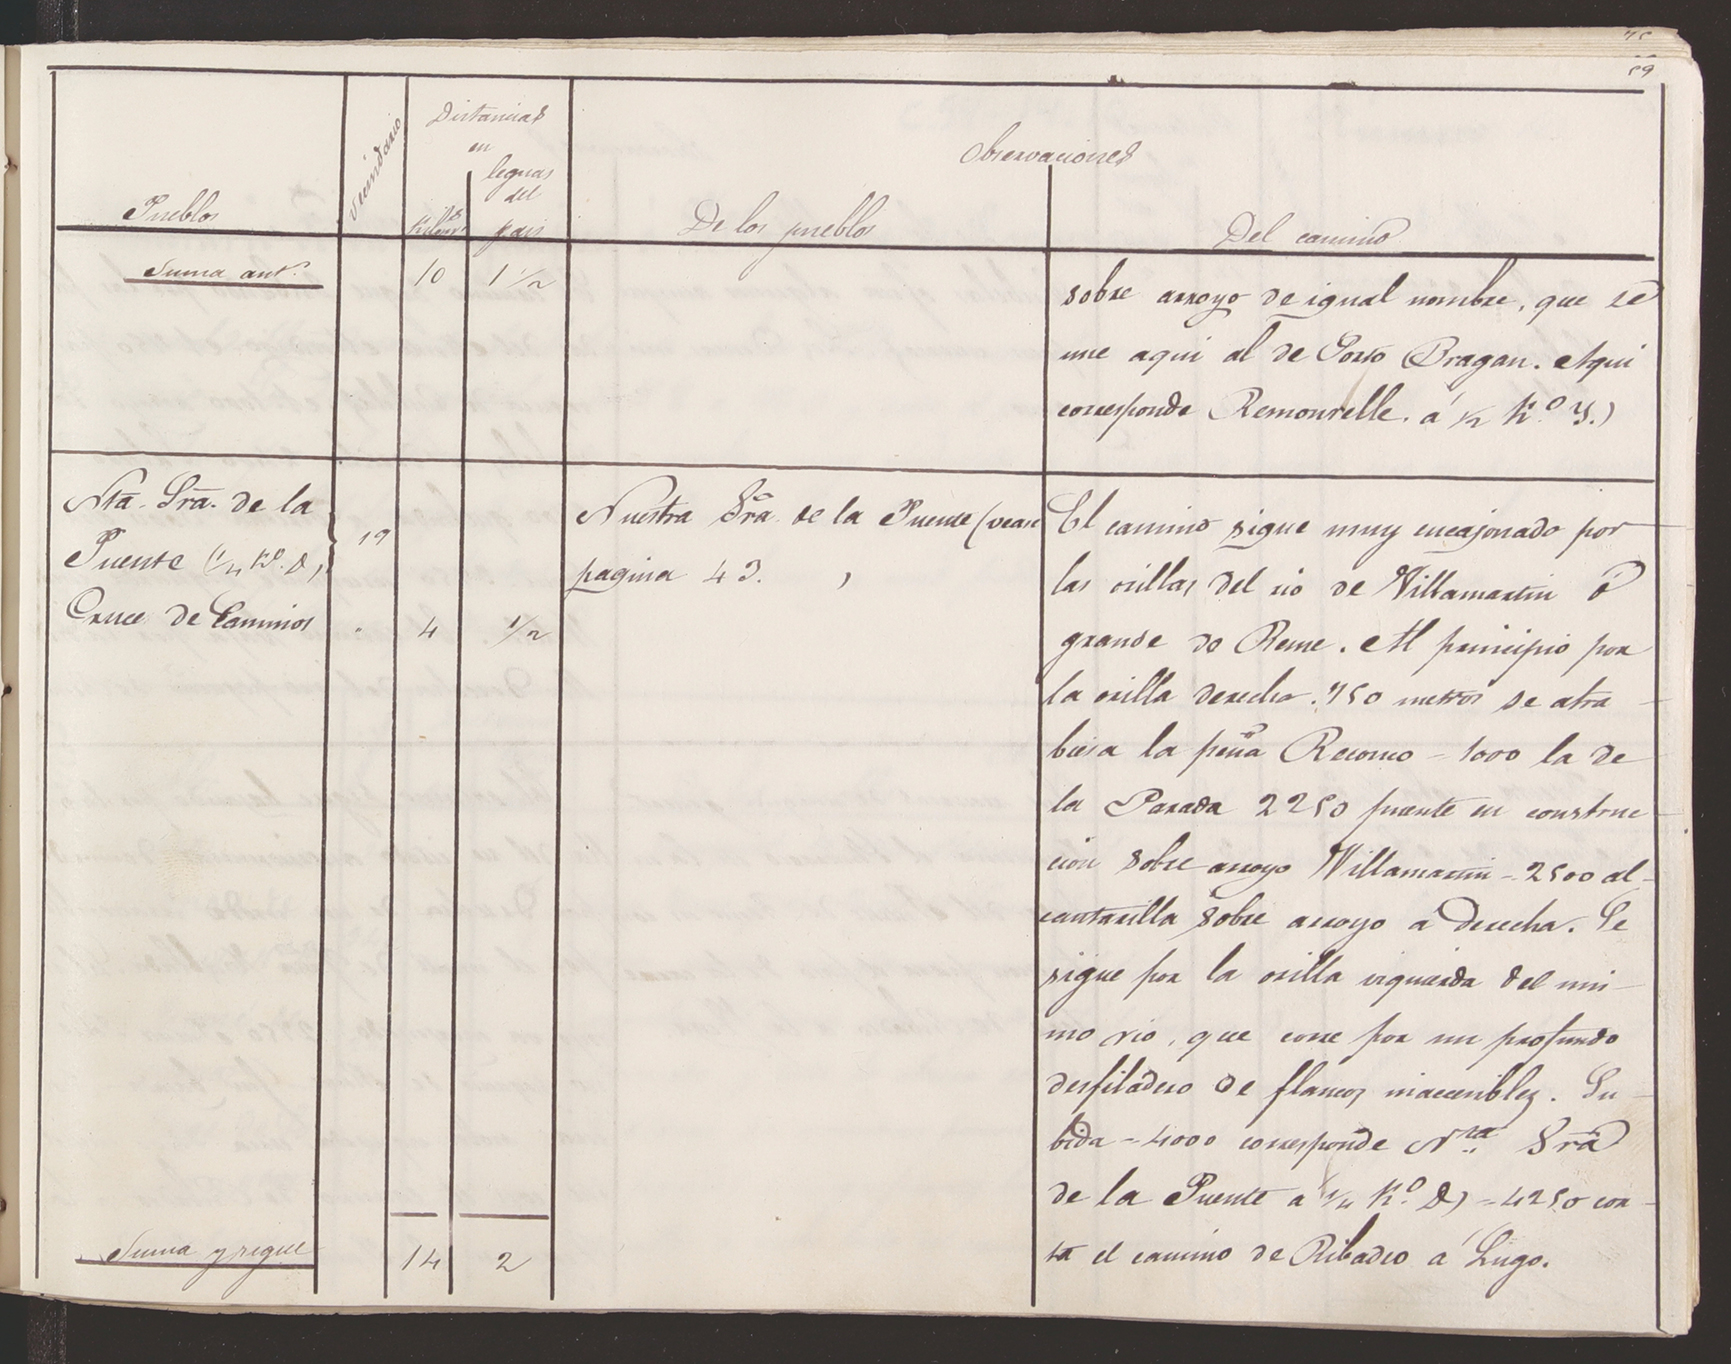 89
Pueblos
Vecindario
Distancias
en
Kiloms
leguas
del
pais
Observaciones
De los pueblos
Del camino
Suma ant.
10
1 1/2
sobre arroyo de igual nombre, que se
une aqui al de Porto Dragan. Aqui
corresponde Remourelle. á 1/2 K.º Y.)
Nta. Sra. de la
Puente (1/4 Kº. D)
19
Cruce de Caminos
"
4
1/2
Nuestra Sra. de la Puente (vease
pagina 43. )
El camino sigue muy encajonado por
las orillas del rio de Villamartin ó
grande do Reme. Al principio por
la orilla derecha. 750 metros se atra
biesa la peña Recomo - 1000 la de
la Parada 2250 puente en construc
cion sobre arroyo Villamartin - 2500 al-
cantarilla sobre arroyo a derecha. Se
sigue por la orilla izquierda del mis-
mo rio, que corre por un profundo
desfiladero de flancos inaccesibles. Su-
bida - 4000 corresponde Nra Sra
de la Puente a 1/4 K.º D) - 4250 cor-
ta el camino de Ribadeo á Lugo.
Suma y sigue
14
2